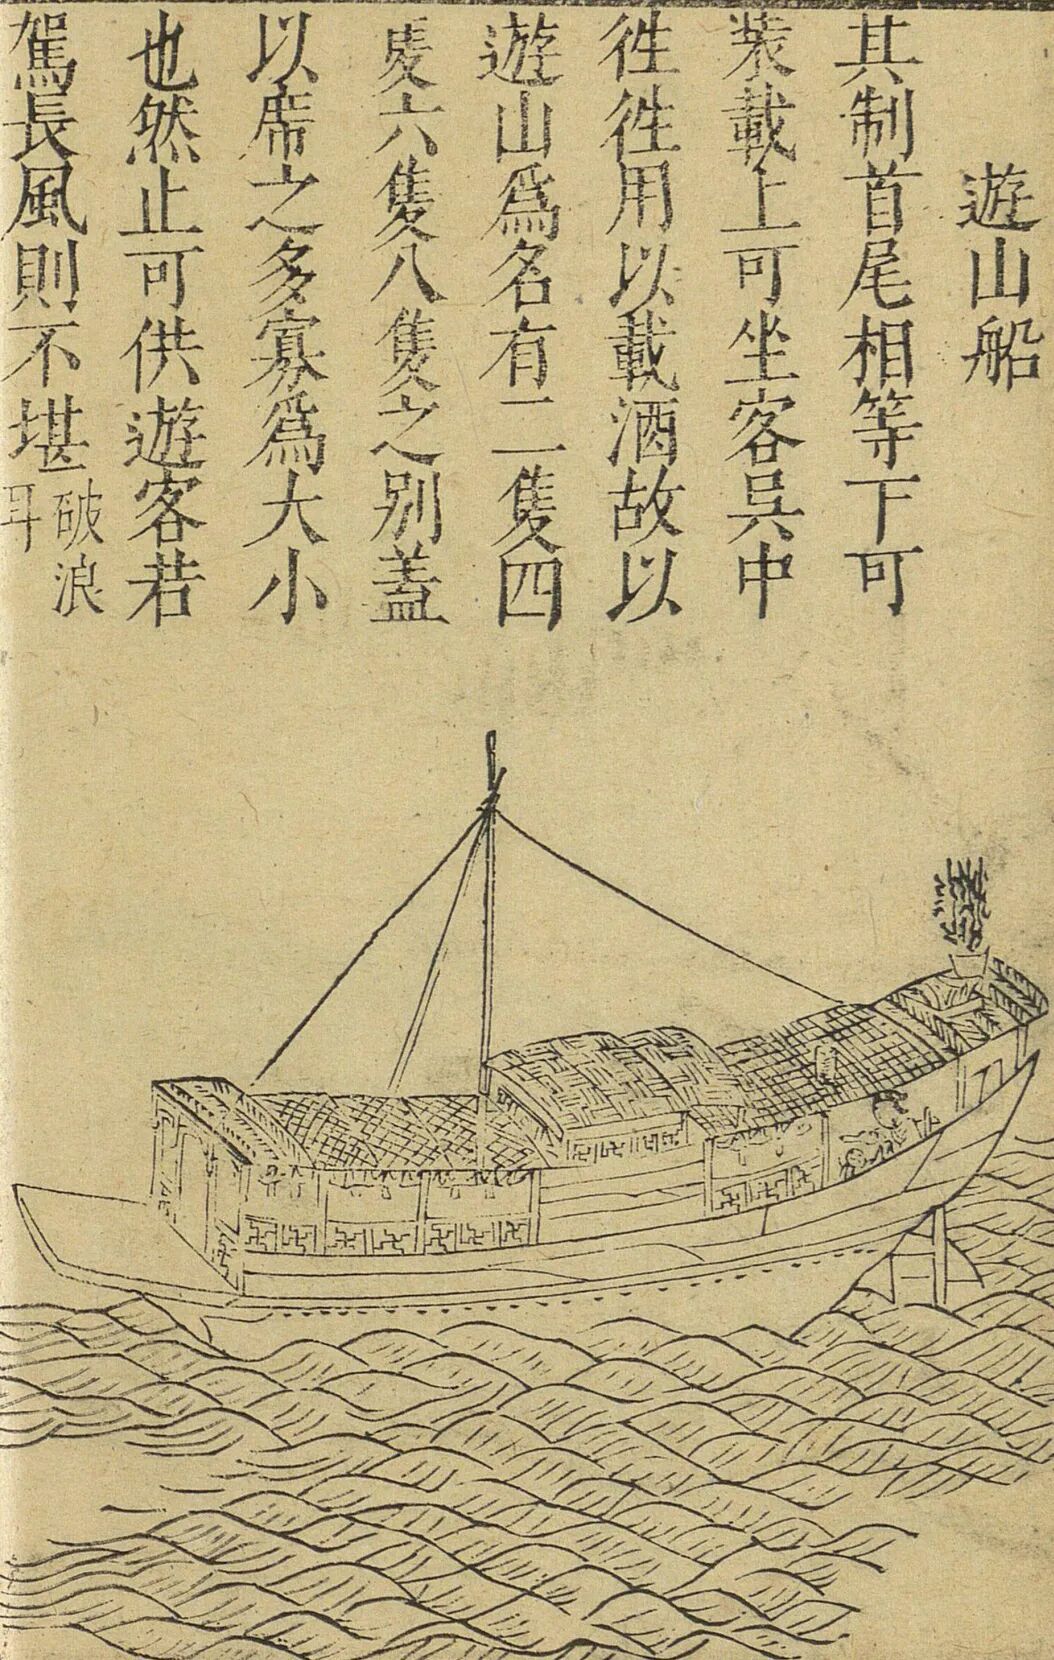 遊山船
其制首尾相等下可
裝載上可坐客吳中
徃徃用以載酒故以
遊山爲名有二隻四
隻六隻八隻之别蓋
以席之多寡爲大小
也然止可供遊客若
駕長風則不堪破浪
耳